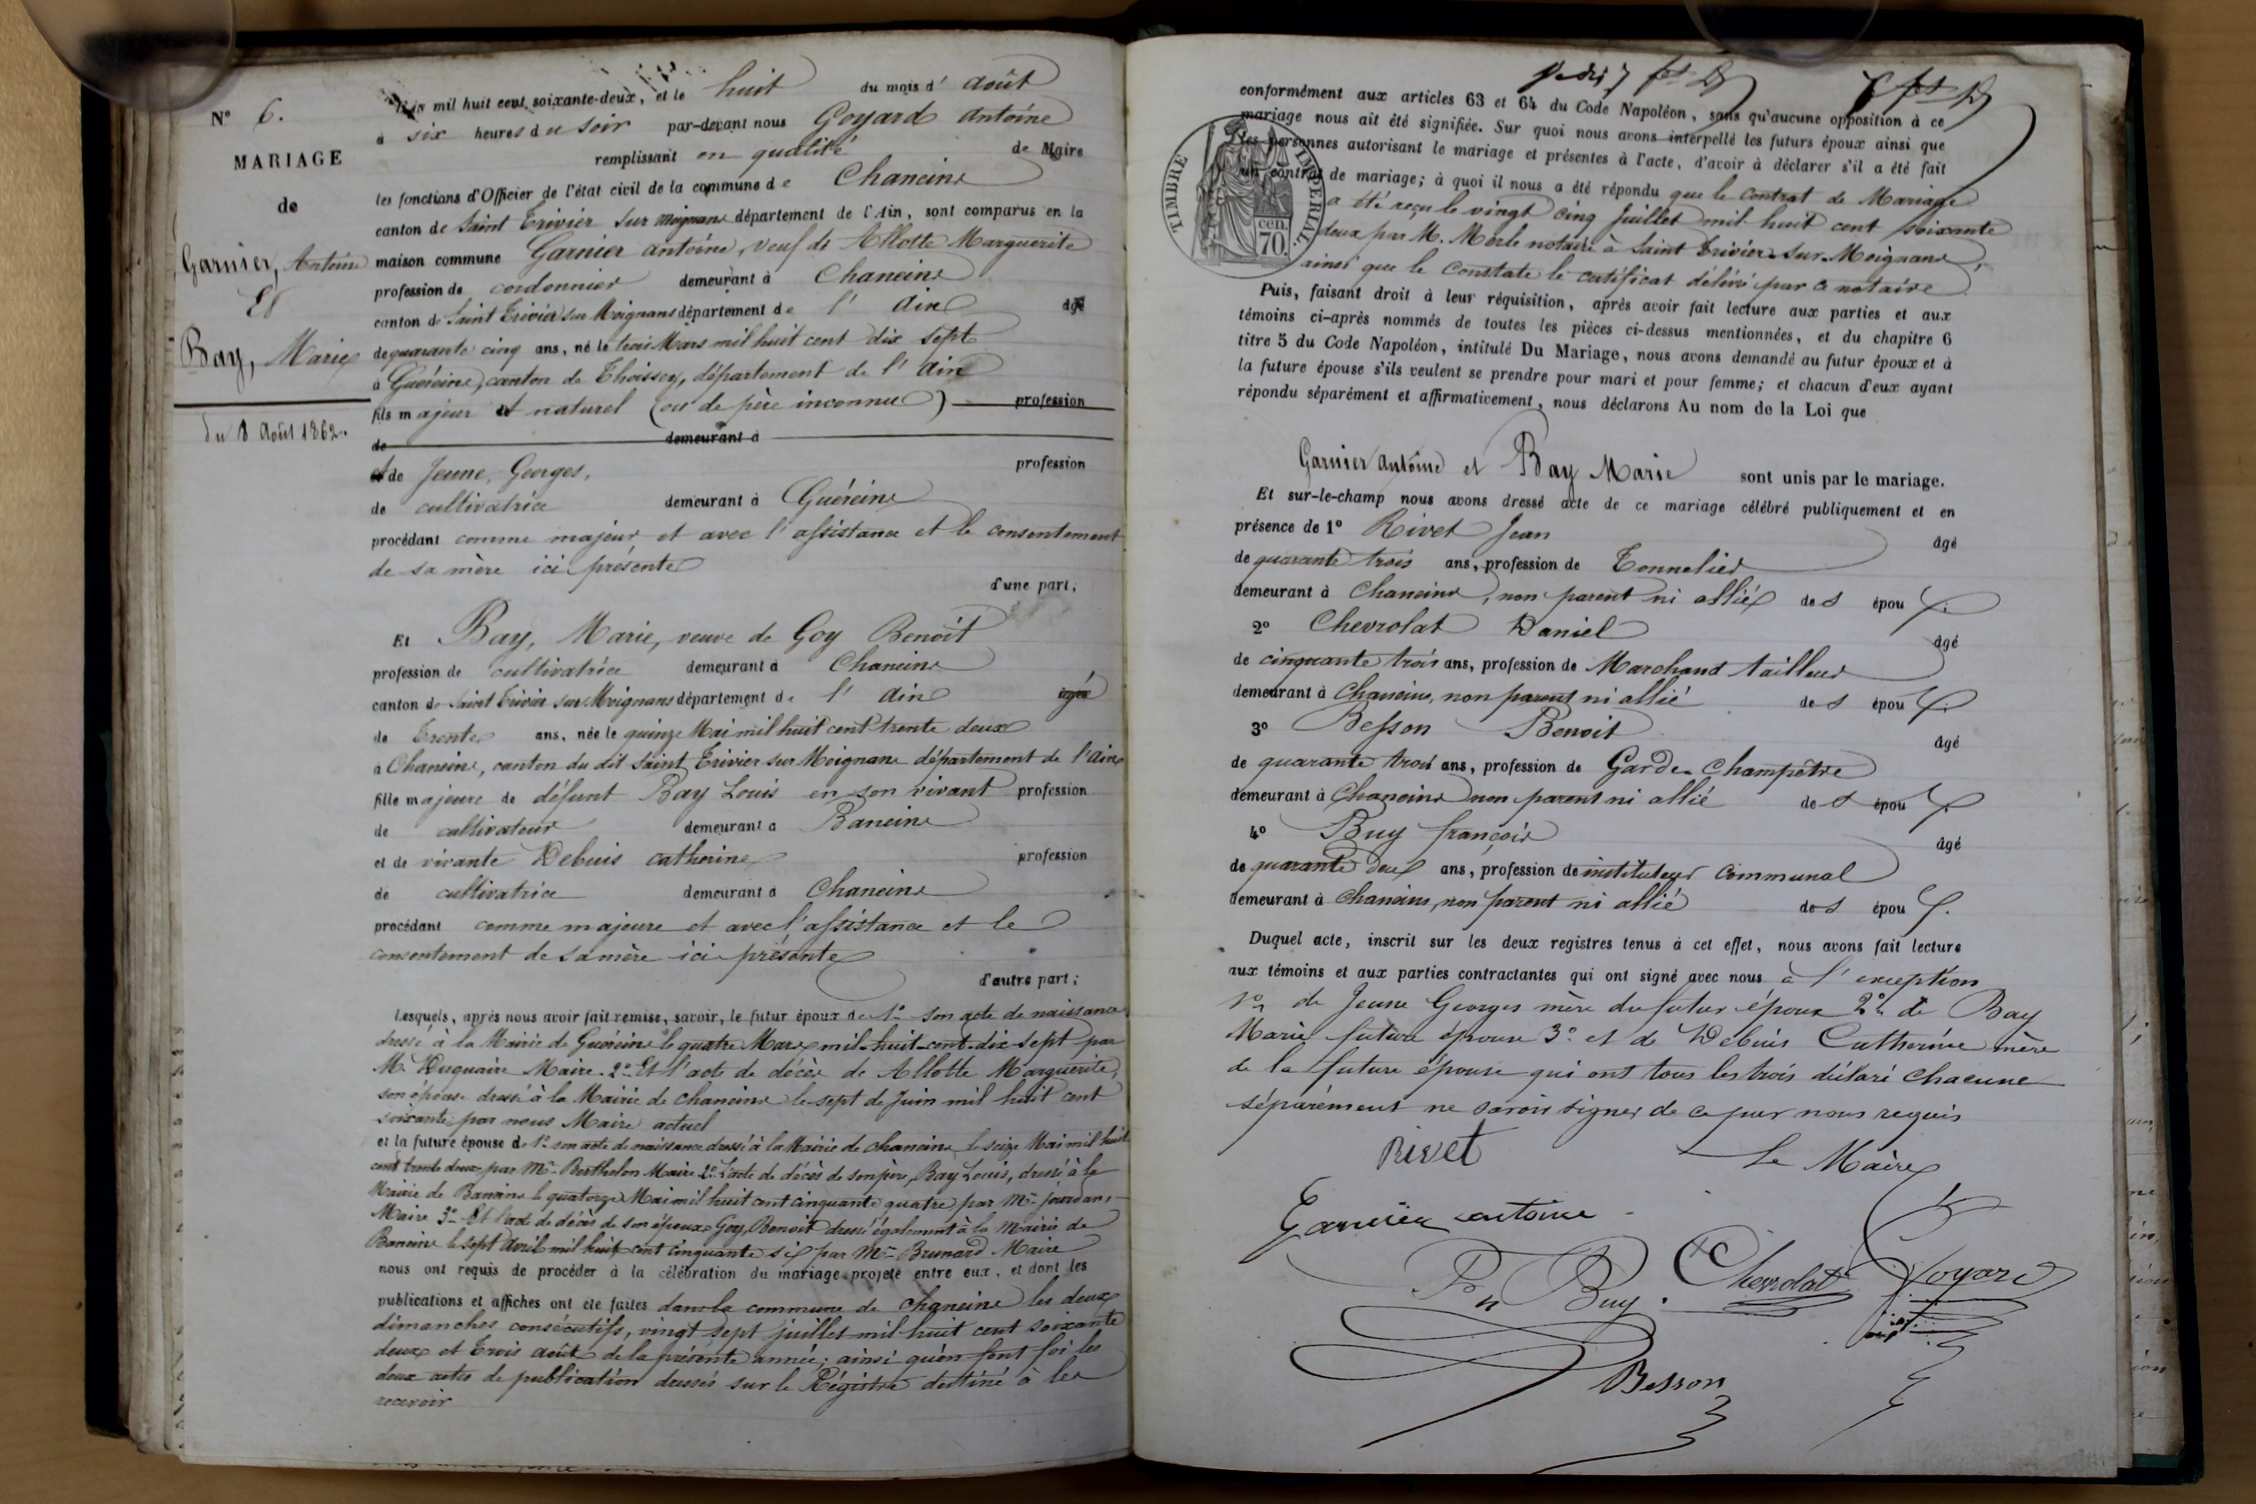 N° 6.
MARIAGE
de
Garnier, Antoine
Et
Bay, Marie
du 8 Août 1862.
mil huit cent soixante-deux, et le huit du mois d' août
à six heures du soir par-devant nous Goyard antoine
remplissant en qualité de Maire
les fonctions d'Officier de l'état civil de la commune de Chaneins
canton de Saint Trivier sur Moignans département de l'Ain, sont comparus en la
maison commune Garnier antoine, veuf de Allotte Marguerite
profession de cordonnier demeurant à Chaneins
canton de Saint Trivier sur Moignans département de l' Ain âgé
de quarante cinq ans, né le trois Mars mil huit cent dix sept
à Guéreins, canton de Thoissey, département de l' Ain
fils majeur et naturel (ou de père inconnu) profession
de demeurant à
et de Jeune, Georges, profession
de cultivatrice demeurant à Guéreins
procédant comme majeur et avec l'assistance et le consentement
de sa mère ici présente
d'une part;
Et Bay, Marie, veuve de Goy Benoît
profession de cultivatrice demeurant à Chaneins
canton de Saint Trivier sur Moignans département de l' Ain âgée
de Trente ans, née le quinze Mai mil huit cent trente deux
à Chaneins, canton du dit Saint Trivier sur Moignans département de l'Ain
fille majeure de défunt Bay Louis en son vivant profession
de cultivateur demeurant à Baneins
et de vivante Debuis catherine profession
de cultivatrice demeurant à Chaneins
procédant comme majeure et avec l'assistance et le
consentement de sa mère ici présente
d'autre part;
Lesquels, après nous avoir fait remise, savoir, le futur époux de 1° son acte de naissance
dressé à la Mairie de Guéreins le quatre Mars mil huit cent dix sept par
M. Maire. 2° Et l'acte de décès de Allotte Marguerite,
son épouse dressé à la Mairie de chaneins le sept de Juin mil huit cent
soixante par nous Maire actuel
et la future épouse de 1° son acte de naissance dressé à la Mairie de chaneins le seize Mai mil huit
cent trente deux par Mr Berthelon Maire 2° L'acte de décès de son père, Bay Louis, dressé à la
Mairie de Baneins le quatorze Mai mil huit cent cinquante quatre par Mr Jourdan,
Maire 3° Et l'acte de décès de son époux Goy, Benoit dressé également à la mairie de
Baneins le sept avril mil huit cent cinquante six par Mr Brunard Maire
nous ont requis de procéder à la célébration du mariage projeté entre eux, et dont les
publications et affiches ont été faites dans la commune de chaneins les deux
dimanches consécutifs, vingt sept juillet mil huit cent soixante
deux et Trois août de la présente année; ainsi qu'en font foi les
deux actes de publication dressés sur le Régistre destiné à les
recevoir
conformément aux articles 63 et 64 du Code Napoléon, sans qu'aucune opposition à ce
mariage nous ait été signifiée. Sur quoi nous avons interpellé les futurs époux ainsi que
les personnes autorisant le mariage et présentes à l'acte, d'avoir à déclarer s'il a été fait
un contrat de mariage; à quoi il nous a été répondu que le contrat de Mariage
a été reçu le vingt cinq Juillet mil huit cent soixante
deux par M. Merle notaire à Saint Trivier sur Moignans,
ainsi que le constate le certificat délivré par ce notaire
TIMBRE IMPERIAL
70 cen.
Puis, faisant droit à leur réquisition, après avoir fait lecture aux parties et aux
témoins ci-après nommés de toutes les pièces ci-dessus mentionnées, et du chapitre 6
titre 5 du Code Napoléon, intitulé Du Mariage, nous avons demandé au futur époux et à
la future épouse s'ils veulent se prendre pour mari et pour femme; et chacun d'eux ayant
répondu séparément et affirmativement, nous déclarons Au nom de la Loi que
Garnier antoine et Bay Marie sont unis par le mariage.
Et sur-le-champ nous avons dressé acte de ce mariage célébré publiquement et en
présence de 1° Rivet Jean âgé
de quarante trois ans, profession de Tonnelier
demeurant à Chaneins, non parent ni allié des époux.
2° Chevrolat Daniel âgé
de cinquante trois ans, profession de Marchand tailleur
demeurant à Chaneins, non parent ni allié des époux.
3° Besson Benoit âgé
de quarante trois ans, profession de Garde-Champêtre
demeurant à Chaneins non parent ni allié des époux.
4° Buy françois âgé
de quarante deux ans, profession de instituteur communal
demeurant à chaneins, non parent ni allié des époux.
Duquel acte, inscrit sur les deux registres tenus à cet effet, nous avons fait lecture
aux témoins et aux parties contractantes qui ont signé avec nous à l'exception
1° de Jeune Georges mère du futur époux 2° de Bay
Marie future épouse 3° et de Debuis Catherine mère
de la future épouse qui ont tous les trois déclaré chacune
séparément ne savoir signer de ce par nous requis
Rivet
Le Maire
Garnier antoine
Buy. Chevrolat Goyard
Besson